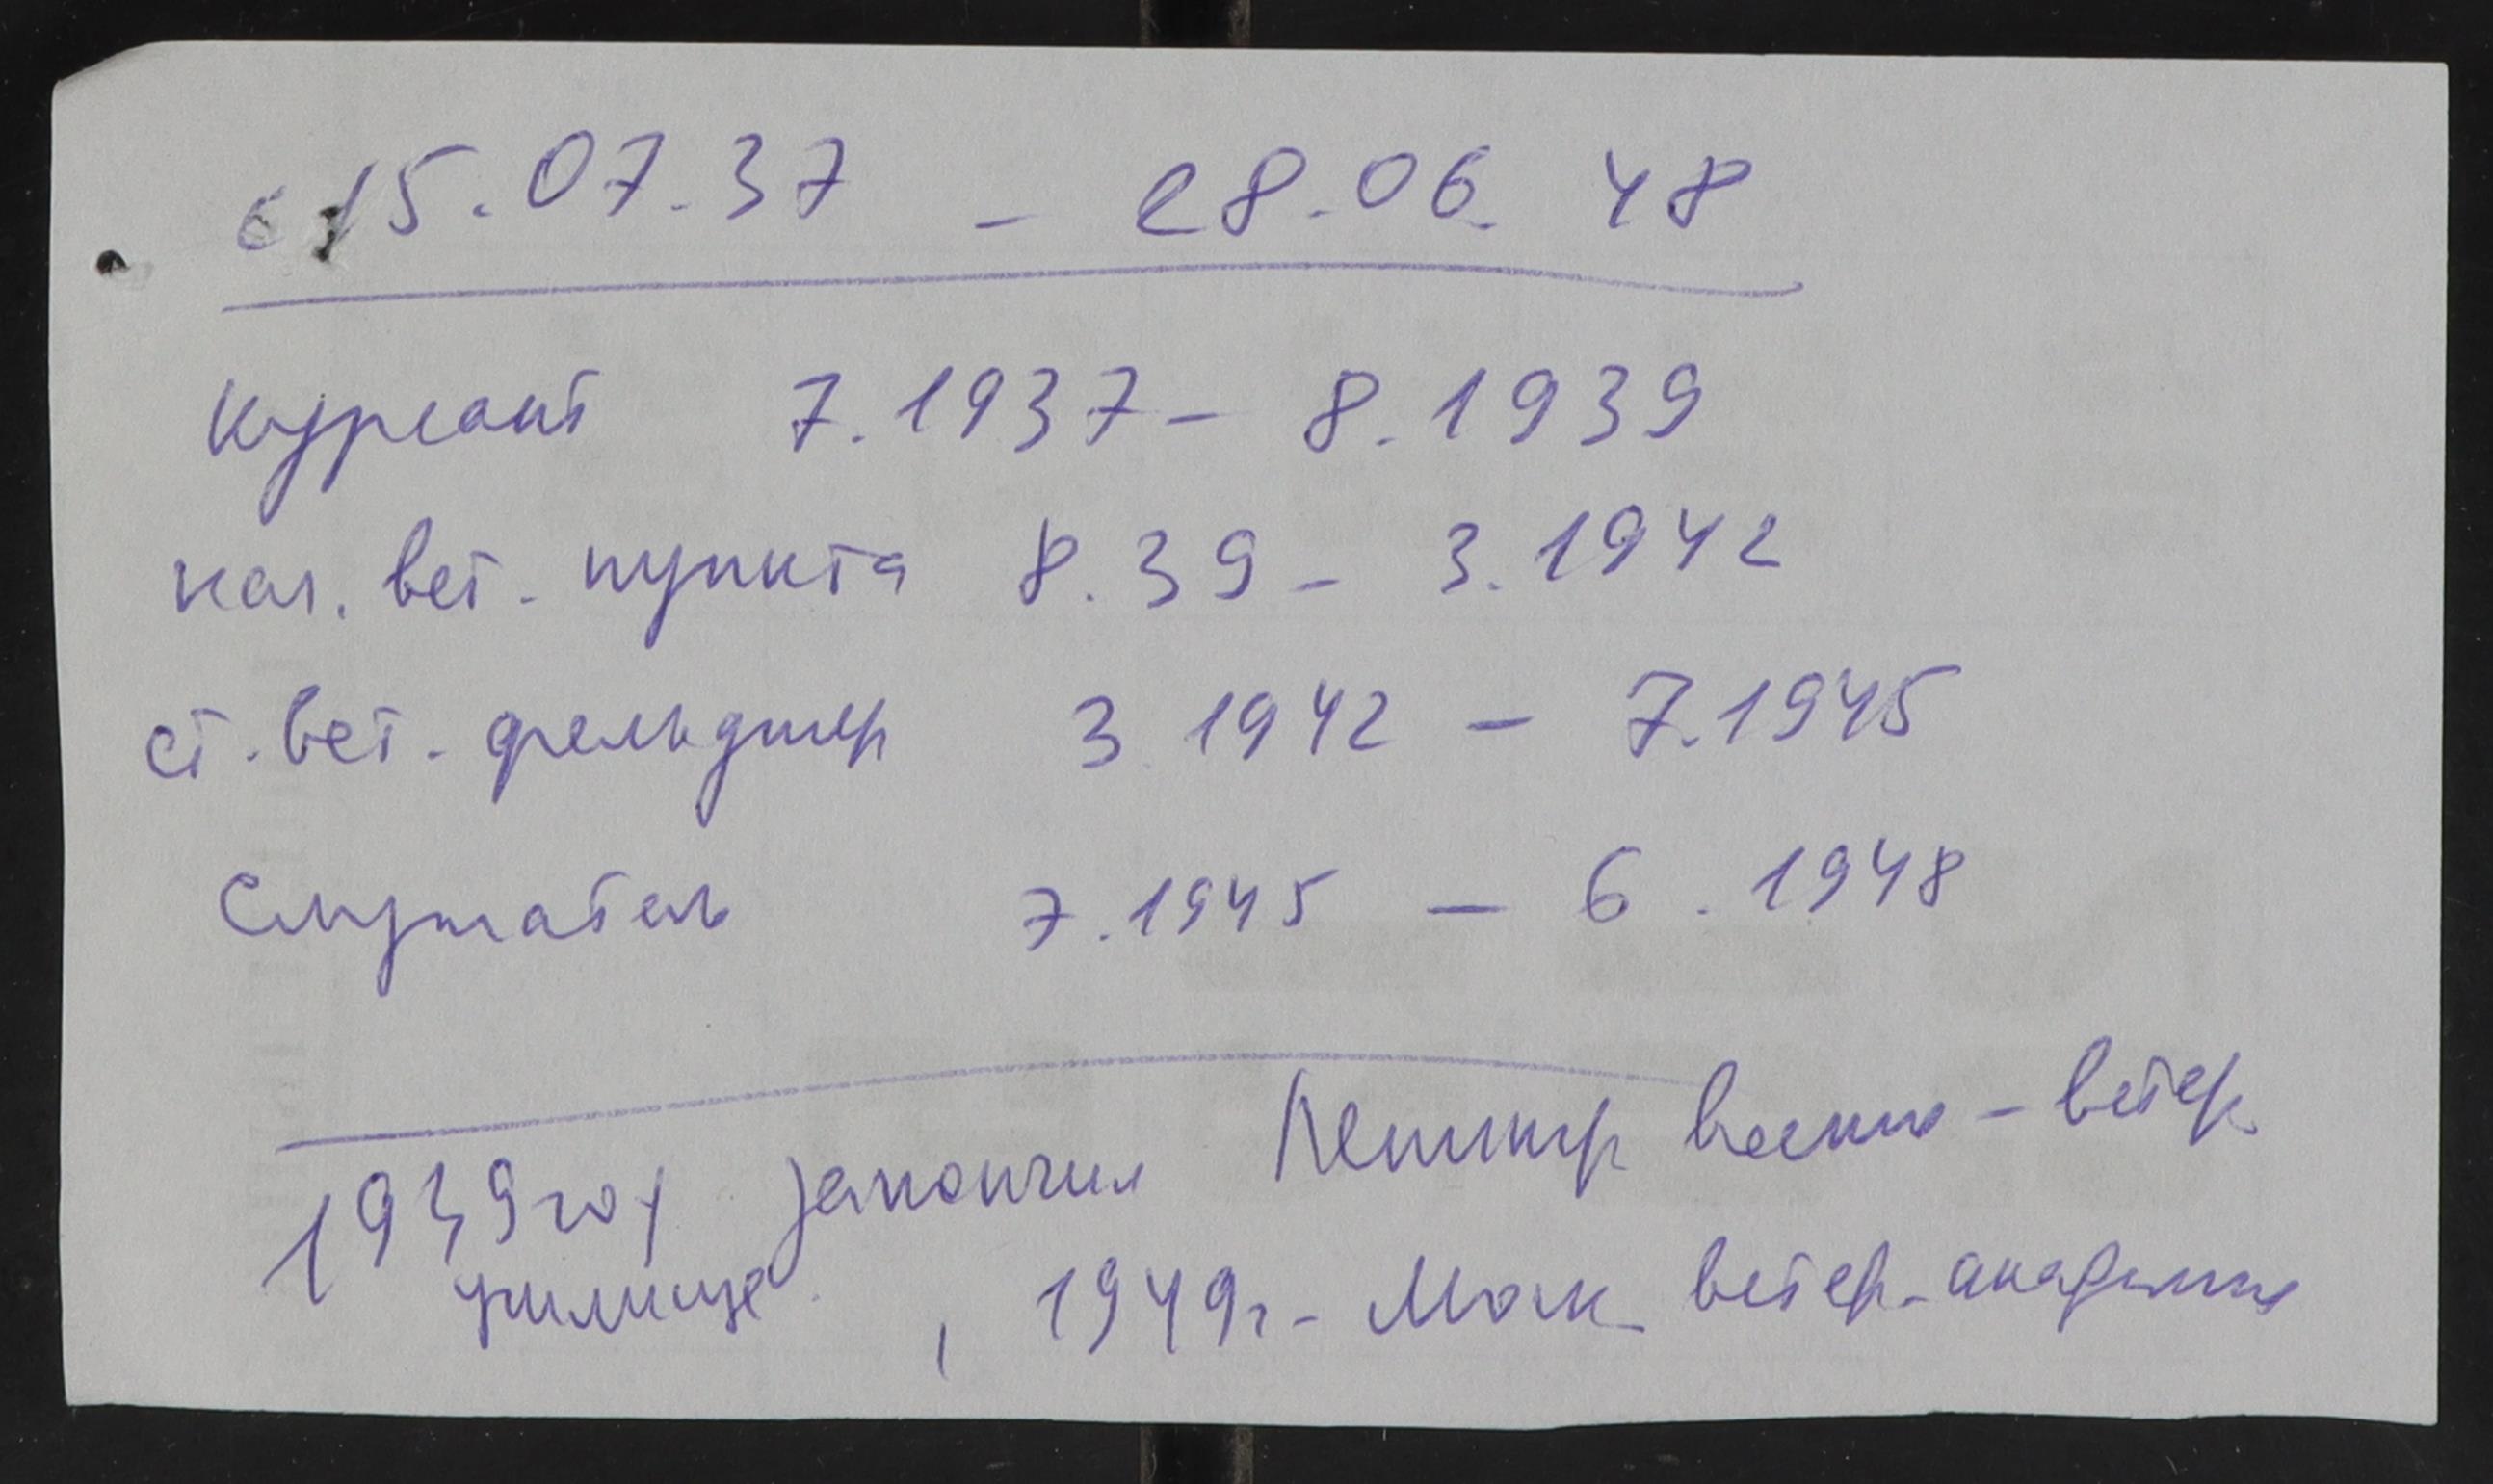 с 15.07.37 - 28.06.48
Курсант 7.1937 - 8.1939
нач. вет. пункта 8.39 - 3.1942
ст. вет. фельдшер 3.1942 - 7.1945
Слушатель 7.1945 - 6.1948
1939 году закончил Ленингр военно-ветер.
училище, 1949г. - Моск. ветер. академия